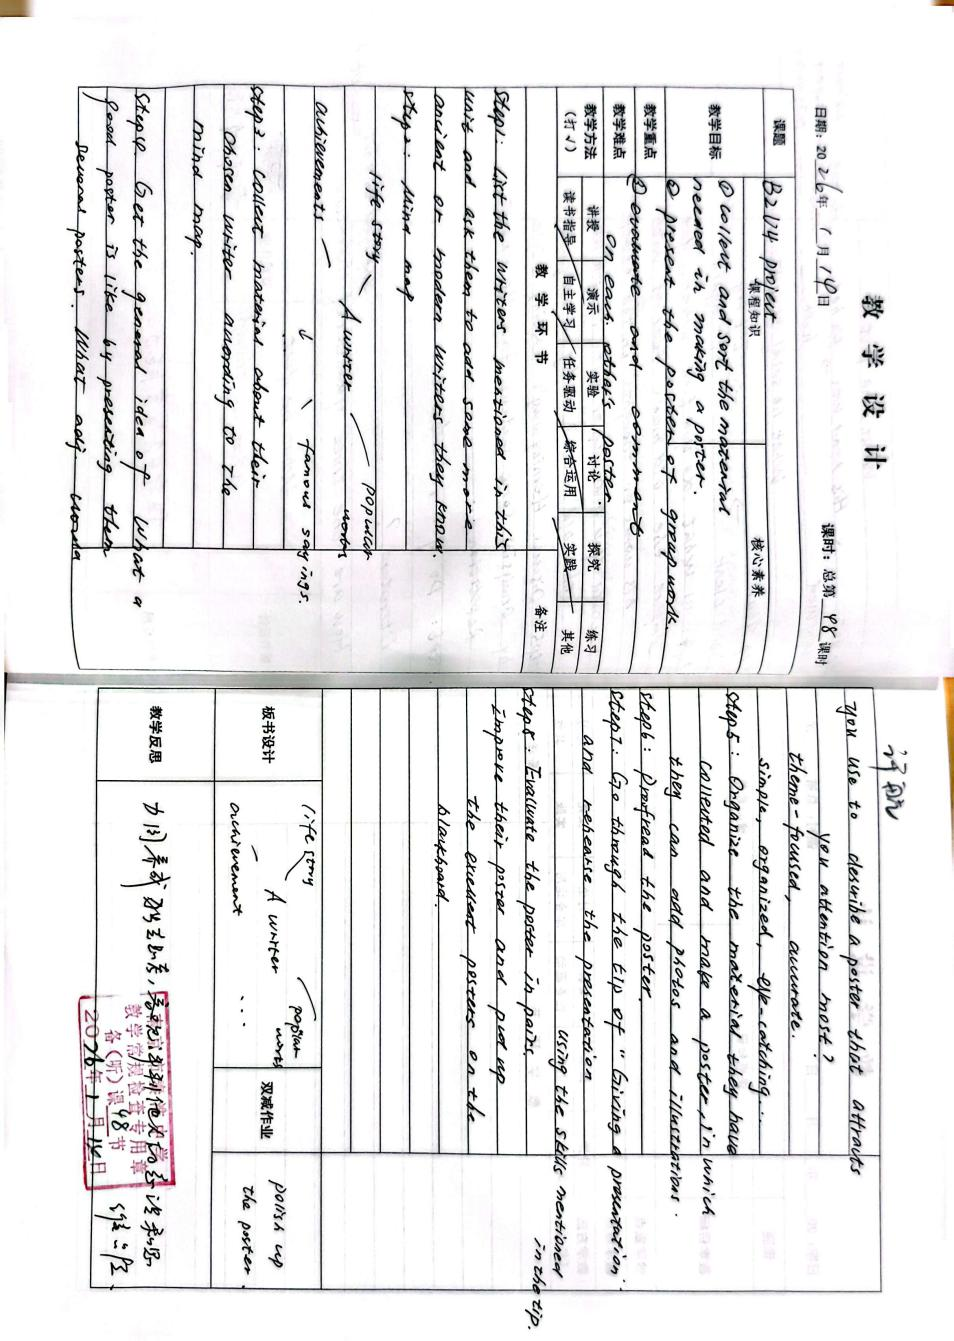 教 学 设 计
日期：2026年 1 月 14日 课时：总第 48 课时
课题 B2U4 project
教学目标 课程知识 核心素养
① collect and sort the material
needed in making a poster.
② present the poster of group work.
教学重点
教学难点
③ evaluate and comment
on each other's poster.
教学方法
（打√）
讲授 演示 实验 讨论 探究 练习
读书指导 自主学习 任务驱动 综合运用 实践 其他
教 学 环 节 备注
Step1: List the writers mentioned in this
unit and ask them to add some more
ancient or modern writers they know.
Step2: Mind map
life story popular works
A writer
achievements famous sayings.
Step3: collect material about their
chosen writer according to the
mind map.
Step4. Get the general idea of what a
good poster is like by presenting them
several posters. What adj words
you use to describe a poster that attracts
you attention most?
theme-focused, accurate.
simple, organized, eye-catching...
Step5: Organize the material they have
collected and make a poster, in which
they can add photos and illustrations.
Step6: Proofread the poster.
Step7. Go through the tip of "Giving a presentation"
and rehearse the presentation
using the skills mentioned
in the tip.
Step8: Evaluate the poster in pairs,
improve their poster and put up
the excellent posters on the
blackboard.
板书设计
life story popular works
A writer
achievement ...
双减作业
polish up
the poster.
教学反思
教学常规检查专用章
备（听）课 48 节
2026年 1 月 14日